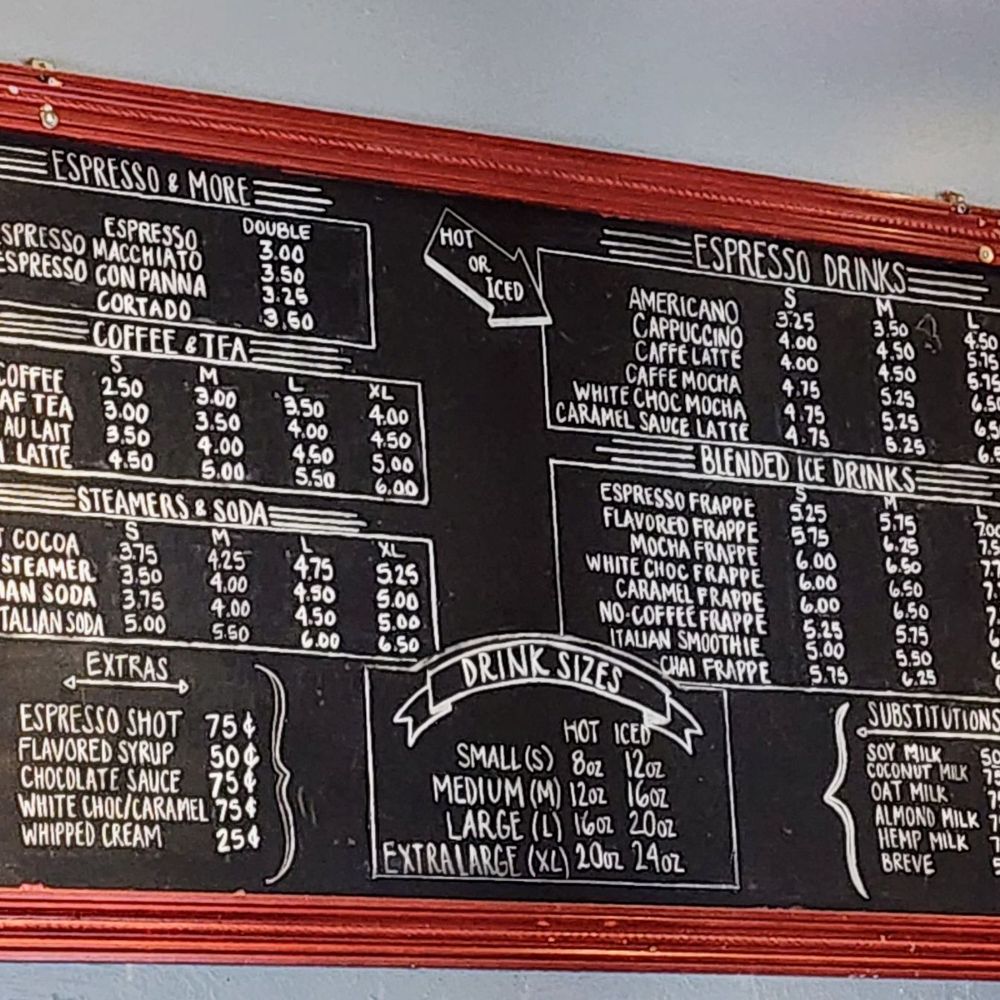 ESPRESSO & MORE
DOUBLE
ESPRESSO 3.00
SPRESSO MACCHIATO 3.50
ESPRESSO CON PANNA 3.25
CORTADO 3.50
COFFEE & TEA
S M L XL
COFFEE 2.50 3.00 3.50 4.00
AF TEA 3.00 3.50 4.00 4.50
AU LAIT 3.50 4.00 4.50 5.00
LATTE 4.50 5.00 5.50 6.00
STEAMERS & SODA
S M L XL
COCOA 3.75 4.25 4.75 5.25
STEAMER 3.50 4.00 4.50 5.00
IAN SODA 3.75 4.00 4.50 5.00
TALIAN SODA 5.00 5.50 6.00 6.50
EXTRAS
ESPRESSO SHOT 75¢
FLAVORED SYRUP 50¢
CHOCOLATE SAUCE 75¢
WHITE CHOC/CARAMEL 75¢
WHIPPED CREAM 25¢
HOT
OR
ICED
ESPRESSO DRINKS
S M L
AMERICANO 3.25 3.50 4.50
CAPPUCCINO 4.00 4.50 5.75
CAFFE LATTE 4.00 4.50 5.75
CAFFE MOCHA 4.75 5.25 6.50
WHITE CHOC MOCHA 4.75 5.25 6.5
CARAMEL SAUCE LATTE 4.75 5.25 6.5
BLENDED ICE DRINKS
S M L
ESPRESSO FRAPPE 5.25 5.75 7.00
FLAVORED FRAPPE 5.75 6.25 7.5
MOCHA FRAPPE 6.00 6.50 7.7
WHITE CHOC FRAPPE 6.00 6.50 7
CARAMEL FRAPPE 6.00 6.50
NO-COFFEE FRAPPE 5.25 5.75
ITALIAN SMOOTHIE 5.00 5.50
CHAI FRAPPE 5.75 6.25
DRINK SIZES
HOT ICED
SMALL (S) 8oz 12oz
MEDIUM (M) 12oz 16oz
LARGE (L) 16oz 20oz
EXTRA LARGE (XL) 20oz 24oz
SUBSTITUTIONS
SOY MILK 50
COCONUT MILK 75
OAT MILK 7
ALMOND MILK 7
HEMP MILK 7
BREVE